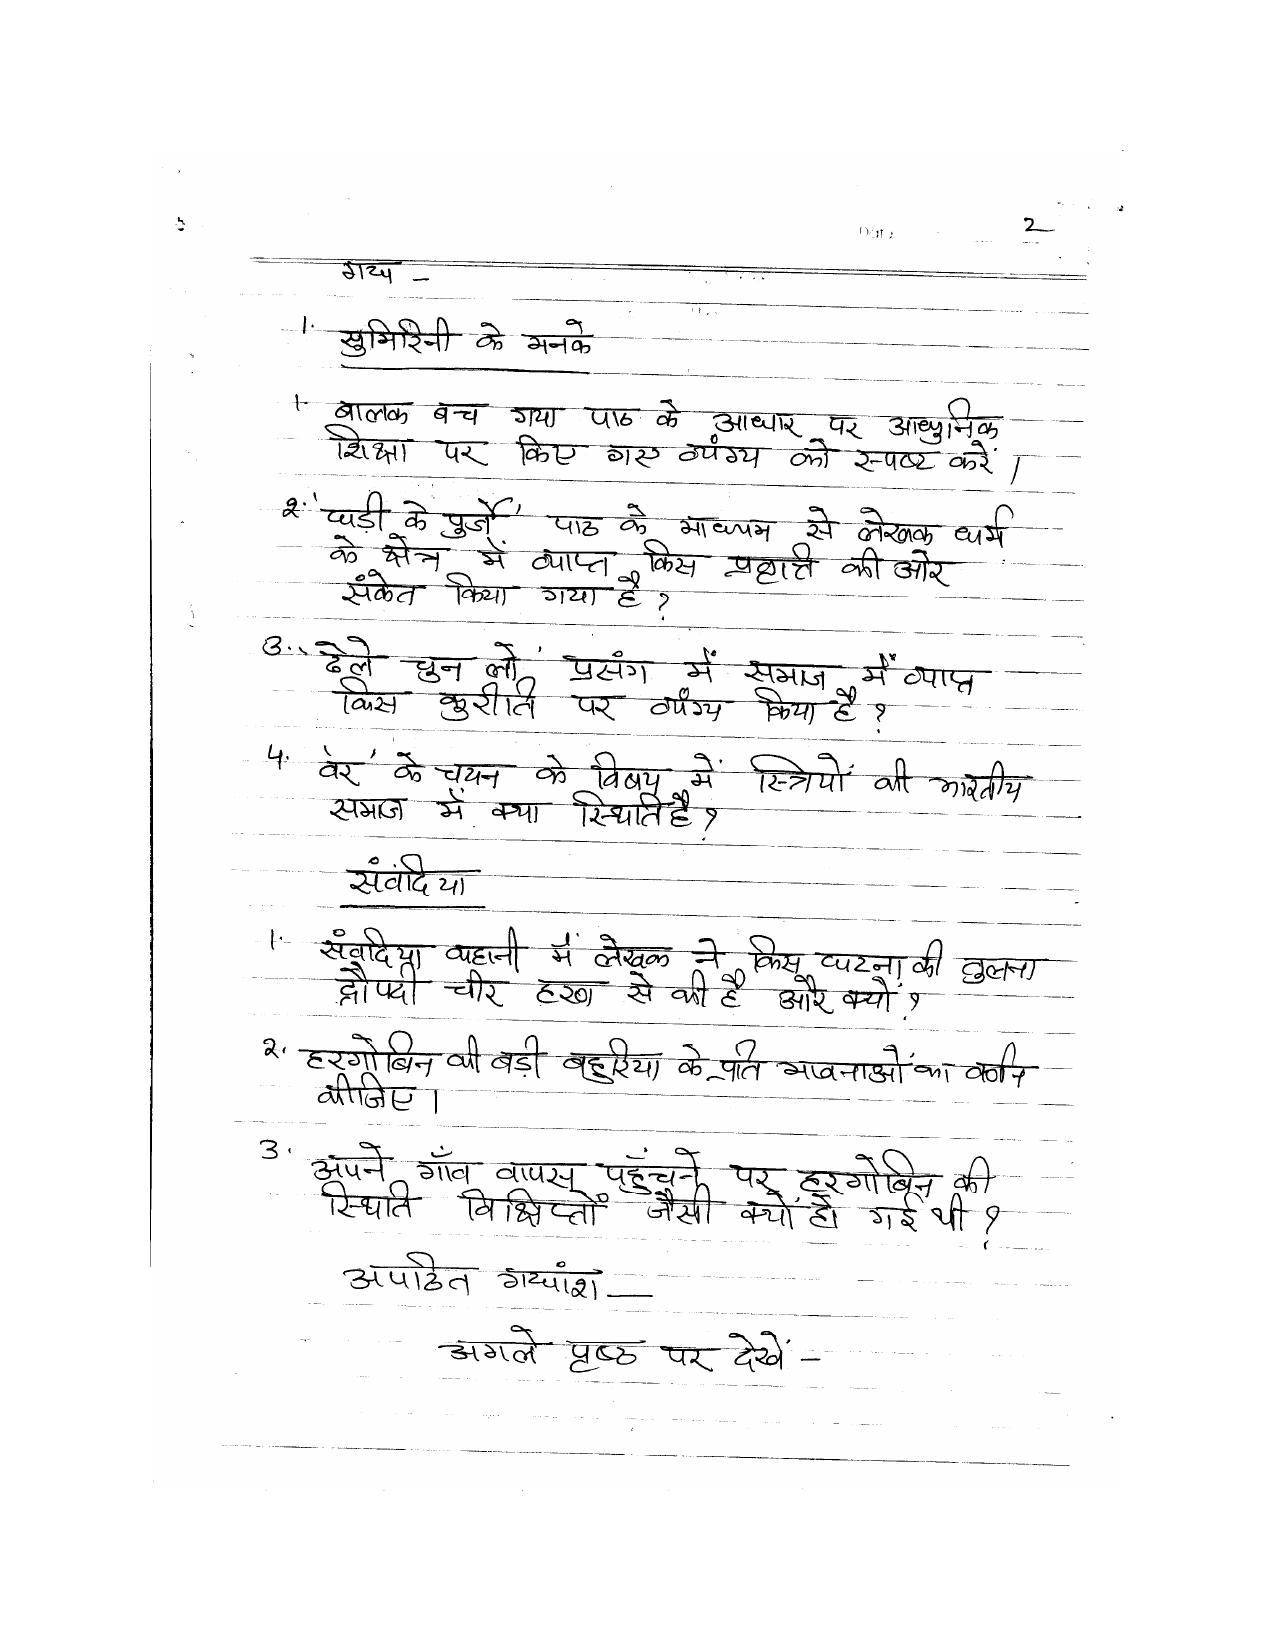 2
गद्य –
1. सुमिरिनी के मनके
1. बालक बच गया पाठ के आधार पर आधुनिक
शिक्षा पर किए गए व्यंग्य को स्पष्ट करें।
2. 'घड़ी के पुर्जे' पाठ के माध्यम से लेखक धर्म
के क्षेत्र में व्याप्त किस प्रवृत्ति की ओर
संकेत किया गया है?
3. 'ढेले चुन लो' प्रसंग में समाज में व्याप्त
किस कुरीति पर व्यंग्य किया है?
4. 'वर' के चयन के विषय में स्त्रियों की भारतीय
समाज में क्या स्थिति है?
संवदिया
1. संवदिया कहानी में लेखक ने किस घटना की तुलना
द्रौपदी चीर हरण से की है और क्यों?
2. हरगोबिन की बड़ी बहुरिया के प्रति भावनाओं का वर्णन
कीजिए।
3. अपने गाँव वापस पहुँचने पर हरगोबिन की
स्थिति विक्षिप्तों जैसी क्यों हो गई थी?
अपठित गद्यांश —
अगले पृष्ठ पर देखें –